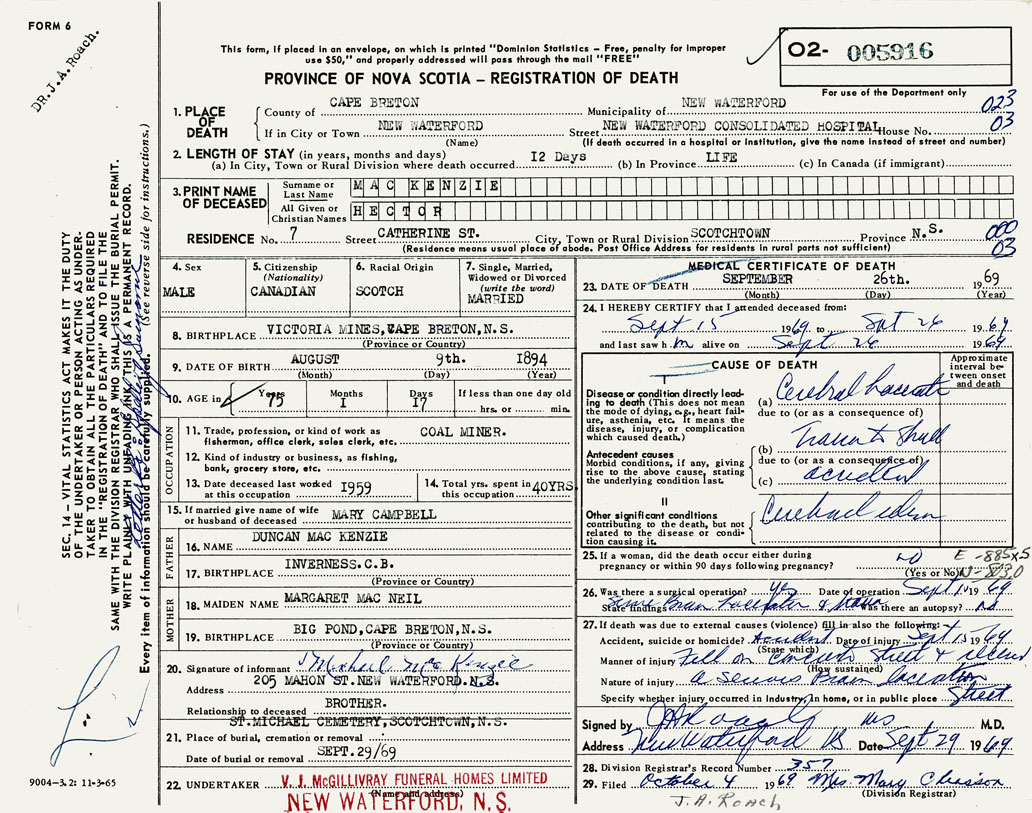 FORM 6
DR. J. A. Roach.
This form, if placed in an envelope, on which is printed "Dominion Statistics – Free, penalty for improper
use $50," and properly addressed will pass through the mail "FREE"
PROVINCE OF NOVA SCOTIA – REGISTRATION OF DEATH
O2- 005916
For use of the Department only
1. PLACE OF DEATH
County of CAPE BRETON Municipality of NEW WATERFORD 023
If in City or Town NEW WATERFORD Street NEW WATERFORD CONSOLIDATED HOSPITAL House No. 03
(Name) (If death occurred in a hospital or institution, give the name instead of street and number)
2. LENGTH OF STAY (in years, months and days)
(a) In City, Town or Rural Division where death occurred I2 Days (b) In Province LIFE (c) In Canada (if immigrant)
3. PRINT NAME OF DECEASED
Surname or Last Name MAC KENZIE
All Given or Christian Names HECTOR
RESIDENCE No. 7 Street CATHERINE ST. City, Town or Rural Division SCOTCHTOWN Province N.S. 000
(Residence means usual place of abode. Post Office Address for residents in rural parts not sufficient) 03
SEC. 14 – VITAL STATISTICS ACT MAKES IT THE DUTY
OF THE UNDERTAKER OR PERSON ACTING AS UNDER-
TAKER TO OBTAIN ALL THE PARTICULARS REQUIRED
IN THE "REGISTRATION OF DEATH" AND TO FILE THE
SAME WITH THE DIVISION REGISTRAR WHO SHALL ISSUE THE BURIAL PERMIT.
WRITE PLAINLY WITH UNFADING INK. THIS IS A PERMANENT RECORD.
Every item of information should be carefully supplied. (See reverse side for instructions.)
4. Sex
MALE
5. Citizenship
(Nationality)
CANADIAN
6. Racial Origin
SCOTCH
7. Single, Married,
Widowed or Divorced
(write the word)
MARRIED
8. BIRTHPLACE VICTORIA MINES, CAPE BRETON, N.S.
(Province or Country)
9. DATE OF BIRTH AUGUST 9th. I894
(Month) (Day) (Year)
10. AGE in Years Months Days If less than one day old
75 I I7 hrs. or min.
OCCUPATION
11. Trade, profession or kind of work as
fisherman, office clerk, sales clerk, etc. COAL MINER.
12. Kind of industry or business, as fishing,
bank, grocery store, etc.
13. Date deceased last worked
at this occupation I959
14. Total yrs. spent in
this occupation 40YRS.
15. If married give name of wife
or husband of deceased MARY CAMPBELL
FATHER
16. NAME DUNCAN MAC KENZIE
17. BIRTHPLACE INVERNESS.C.B.
(Province or Country)
MOTHER
18. MAIDEN NAME MARGARET MAC NEIL
19. BIRTHPLACE BIG POND, CAPE BRETON, N.S.
(Province or Country)
20. Signature of informant Michael McKenzie
Address 205 MAHON ST. NEW WATERFORD.N.S.
Relationship to deceased BROTHER.
ST.MICHAEL CEMETERY, SCOTCHTOWN, N.S.
21. Place of burial, cremation or removal
Date of burial or removal SEPT.29/69
22. UNDERTAKER V. J. McGILLIVRAY FUNERAL HOMES LIMITED
(Name and address)
NEW WATERFORD, N. S.
MEDICAL CERTIFICATE OF DEATH
23. DATE OF DEATH SEPTEMBER 26th. 1969
(Month) (Day) (Year)
24. I HEREBY CERTIFY that I attended deceased from:
Sept 15 1969 to Sept 26 1969
and last saw him alive on Sept 26 1969
CAUSE OF DEATH
Approximate interval between onset and death
I
Disease or condition directly lead-
ing to death (This does not mean
the mode of dying, e.g., heart fail-
ure, asthenia, etc. It means the
disease, injury, or complication
which caused death.)
(a) Cerebral
due to (or as a consequence of)
Antecedent causes
Morbid conditions, if any, giving
rise to the above cause, stating
the underlying condition last.
(b) Skull
due to (or as a consequence of)
(c) accident
II
Other significant conditions
contributing to the death, but not
related to the disease or condi-
tion causing it.
Cerebral edema
25. If a woman, did the death occur either during
pregnancy or within 90 days following pregnancy? no
(Yes or No)
E - 885X5
26. Was there a surgical operation? yes Date of operation Sept 1969
State findings Brain Was there an autopsy? no
27. If death was due to external causes (violence) fill in also the following:
Accident, suicide or homicide? Accident Date of injury Sept 15 1969
(State which)
Manner of injury Fell on concrete street &
(How sustained)
Nature of injury a Brain laceration
Specify whether injury occurred in industry, in home, or in public place Street
Signed by M.D.
Address New Waterford NS Date Sept 29 1969
28. Division Registrar's Record Number 357
29. Filed October 4 1969 Mrs. Mary Chiasson
(Division Registrar)
J. A. Roach
9004-3.2: 11-3-65